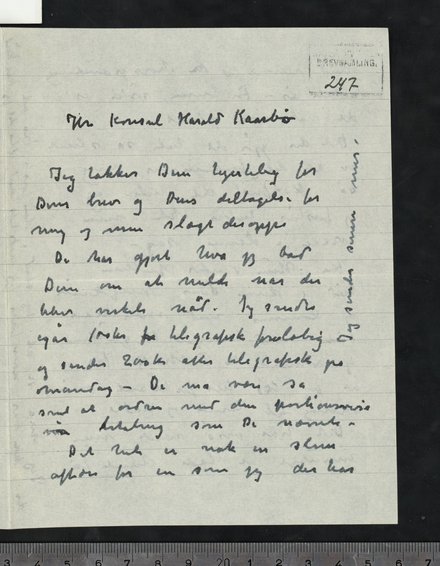 BREVSAMLING.
247
Hr Konsul Harald Kaarbø
Jeg takker Dem hjertelig for
Deres brev og Deres deltagelse for
mig og min slægt deroppe
De har gjort hva jeg bad
Dem om at melde når der
blev virkelig nød. Jeg sendte
igår 100kr telegrafisk foreløbig –
og sender 200kr atter telegrafisk på
mandag – De må være så
snil at ordne med den portionsvise
betaling som De nævnte –
Det hele er nok en slem
affære for en som jeg der har
sender senere mer.